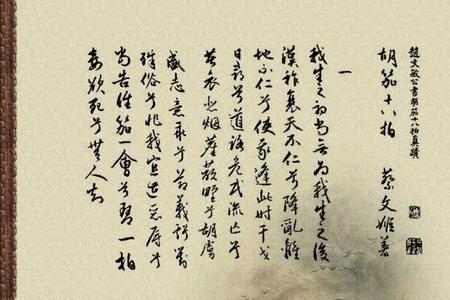 趙文敏公書胡笳十八拍真蹟
胡笳十八拍 蔡文姬著
一
我生之初尚無為我生之後
漢祚衰天不仁兮降亂離
地不仁兮使我逢此時干戈
日尋兮道路危民流亡兮
共哀悲煙塵蔽野兮胡虜
盛志意乖兮節義虧對
殊俗兮非我宜遭惡辱兮
當告誰笳一會兮琴一拍
死兮無人知